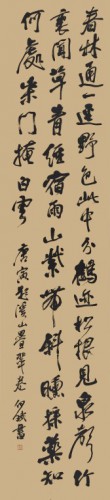 春林通一逕野色此中分鶴迹松根見泉聲竹
裏聞草青經宿雨山紫帶斜曛採藥知
何處柴門掩白雲 庚寅題溪山疊翠卷 書